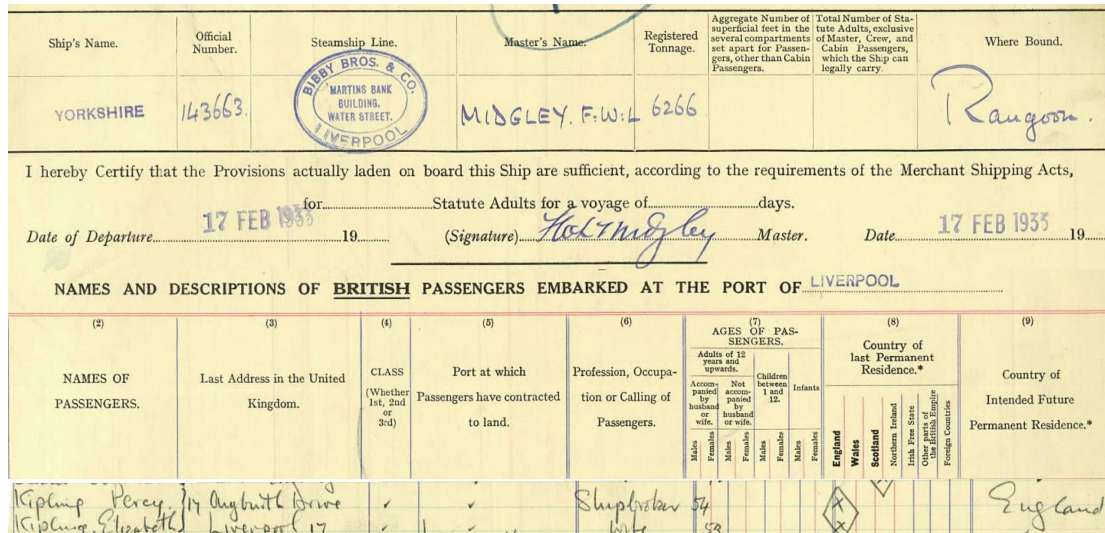 Ship's Name.
Official Number.
Steamship Line.
Master's Name.
Registered Tonnage.
Aggregate Number of superficial feet in the several compartments set apart for Passengers, other than Cabin Passengers.
Total Number of Statute Adults, exclusive of Master, Crew, and Cabin Passengers, which the Ship can legally carry.
Where Bound.
YORKSHIRE
143663.
BIBBY BROS. & CO.
MARTINS BANK
BUILDING,
WATER STREET.
LIVERPOOL
MIDGLEY. F.W.L
6266
Rangoon.
I hereby Certify that the Provisions actually laden on board this Ship are sufficient, according to the requirements of the Merchant Shipping Acts,
for Statute Adults for a voyage of days.
Date of Departure 17 FEB 1933 19 (Signature) Midgley Master. Date 17 FEB 1933 19
NAMES AND DESCRIPTIONS OF BRITISH PASSENGERS EMBARKED AT THE PORT OF LIVERPOOL
(2) (3) (4) (5) (6) (7) (8) (9)
NAMES OF
PASSENGERS.
Last Address in the United
Kingdom.
CLASS
(Whether
1st, 2nd
or
3rd)
Port at which
Passengers have contracted
to land.
Profession, Occupa-
tion or Calling of
Passengers.
AGES OF PAS-
SENGERS.
Adults of 12
years and
upwards.
Accom-
panied
by
husband
or
wife.
Not
accom-
panied
by
husband
or wife.
Children
between
1 and
12.
Infants
Males
Females
Males
Females
Males
Females
Males
Females
Country of
last Permanent
Residence.*
England
Wales
Scotland
Northern Ireland
Irish Free State
Other parts of
the British Empire
Foreign Countries
Country of
Intended Future
Permanent Residence.*
Kipling Percy 17 Drive Shipbroker 54 x England
Kipling, Elizabeth Liverpool 17 Wife x